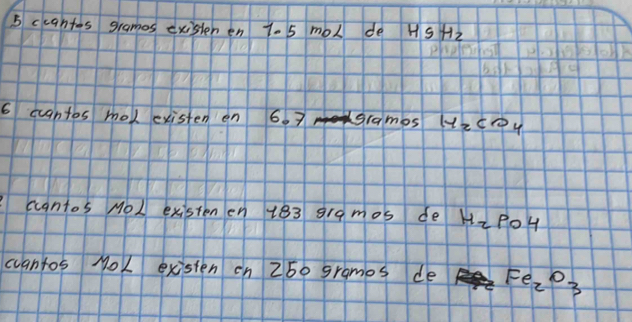 5 cuantos gramos existen en 1.5 mol de HgH2
6 cuantos mol existen en 6.7 gramos H2CO4
cuantos MOL existen en 183 gramos de H2PO4
cuantos MOL existen en 250 gramos de Fe2O3